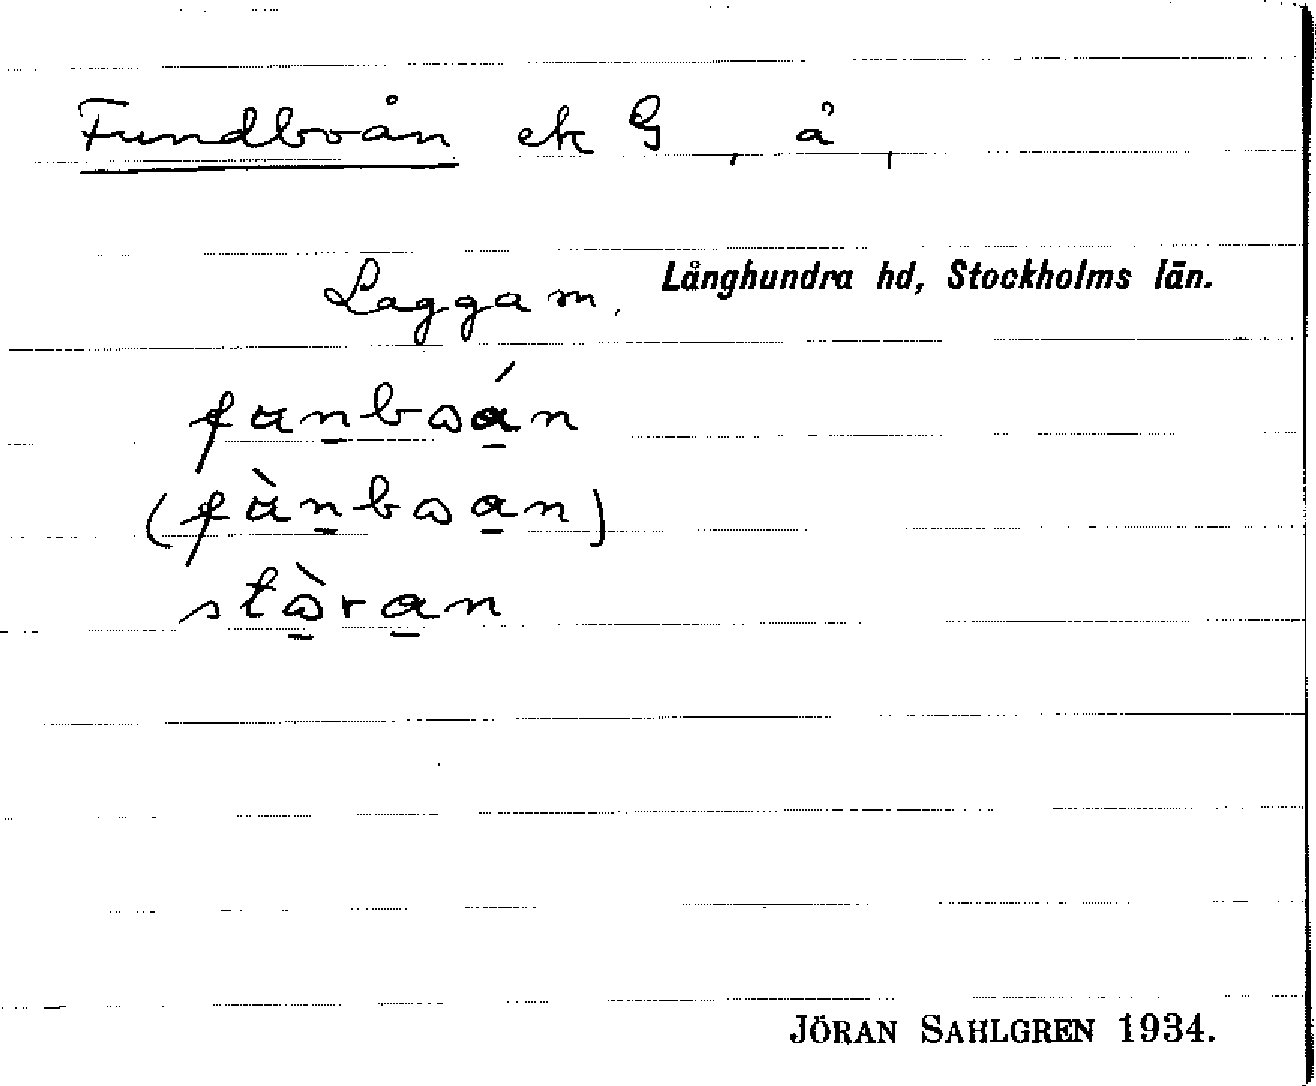 Fundboån ek G, å,
Laggam, Långhundra hd, Stockholms län.
fanbɷán
(fànbɷan)
stɷ̀ran
JÖRAN SAHLGREN 1934.